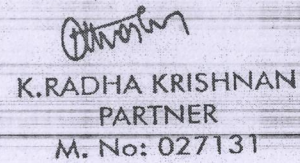 K.RADHA KRISHNAN
PARTNER
M. No: 027131